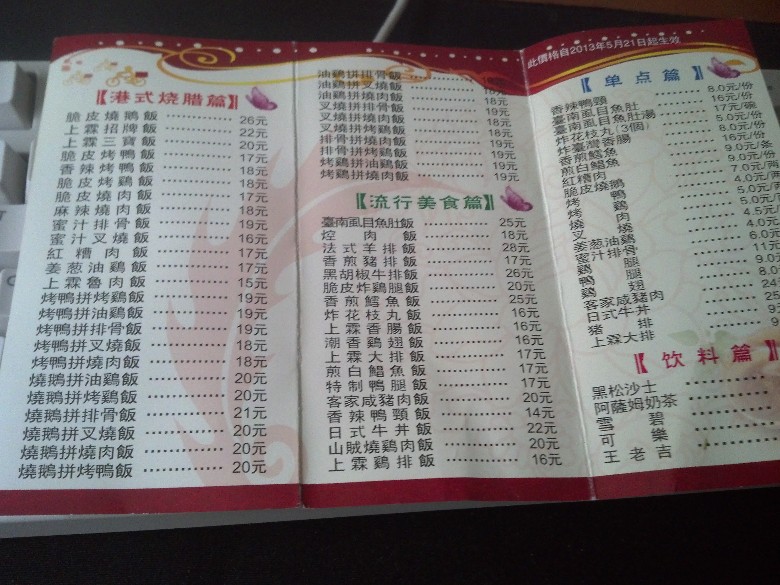 【港式燒腊篇】
脆皮燒鵝飯 26元
上霖招牌飯 22元
上霖三寶飯 20元
脆皮烤鴨飯 17元
香辣烤鴨飯 18元
脆皮烤鷄飯 18元
脆皮燒肉飯 17元
麻辣燒肉飯 18元
蜜汁排骨飯 19元
蜜汁叉燒飯 16元
紅糟肉飯 17元
姜葱油鷄飯 17元
上霖魯肉飯 15元
烤鴨拼烤鷄飯 19元
烤鴨拼油鷄飯 19元
烤鴨拼排骨飯 19元
烤鴨拼叉燒飯 18元
烤鴨拼燒肉飯 18元
燒鵝拼油鷄飯 20元
燒鵝拼烤鷄飯 20元
燒鵝拼排骨飯 21元
燒鵝拼叉燒飯 20元
燒鵝拼燒肉飯 20元
燒鵝拼烤鴨飯 20元
油鷄拼排骨飯
油鷄拼叉燒飯 18元
油鷄拼燒肉飯 18元
叉燒拼排骨飯 19元
叉燒拼燒肉飯 18元
叉燒拼烤鷄飯 18元
排骨拼燒肉飯 19元
排骨拼烤鷄飯 19元
烤鷄拼油鷄飯 19元
烤鷄拼燒肉飯 19元
【流行美食篇】
臺南虱目魚肚飯 25元
焢肉飯 18元
法式羊排飯 28元
香煎豬排飯 17元
黑胡椒牛排飯 26元
脆皮炸鷄腿飯 20元
香煎鱈魚飯 25元
炸花枝丸飯 16元
上霖香腸飯 16元
潮香鷄翅飯 16元
上霖大排飯 17元
煎白鯧魚飯 17元
特制鴨腿飯 17元
客家咸豬肉飯 20元
香辣鴨頸飯 14元
日式牛丼飯 22元
山賊燒鷄肉飯 20元
上霖鷄排飯 16元
此價格自2013年5月21日起生效
【单点篇】
香辣鴨頸 8.0元/份
臺南虱目魚肚 16元/份
臺南虱目魚肚湯 17元/碗
炸花枝丸(3個) 5.0元/份
炸臺灣香腸 8.0元/份
香煎鱈魚 16元/份
煎白鯧魚 9.0元/条
紅糟肉 9.0元/份
脆皮燒鵝
烤鴨
烤鷄
燒肉
叉燒
姜葱油鷄
蜜汁排骨
鷄腿
鴨腿
鷄翅
客家咸豬肉
日式牛丼
豬排
上霖大排
【饮料篇】
黑松沙士
阿薩姆奶茶
雪碧
可樂
王老吉